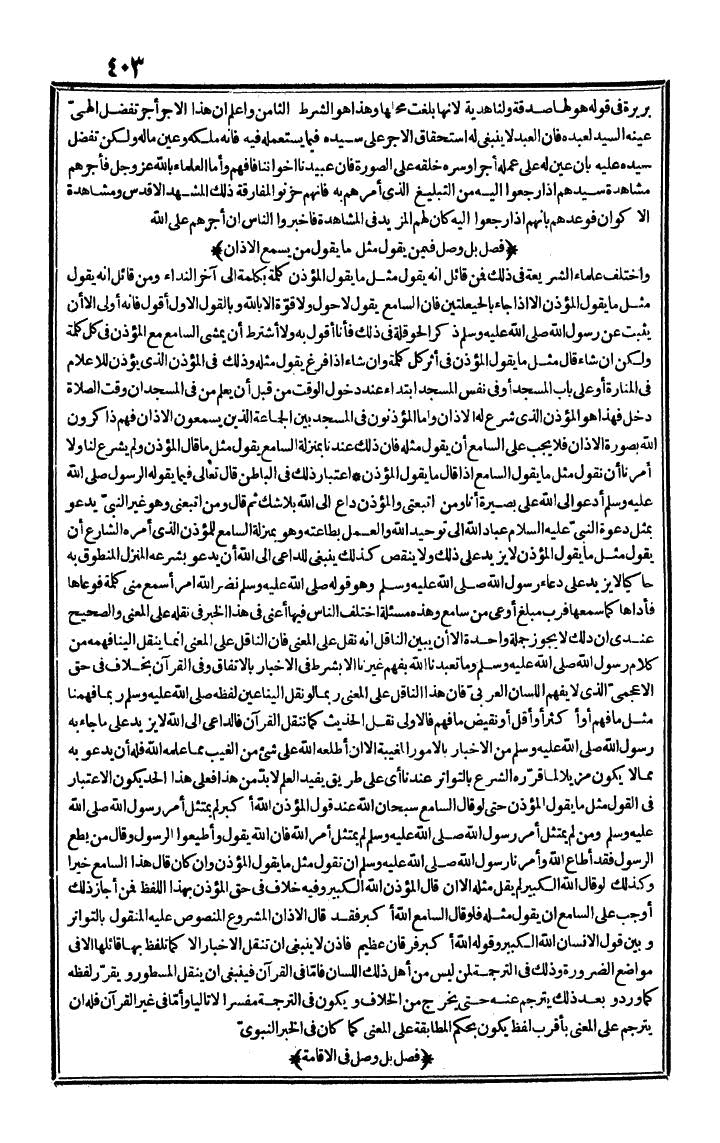 ٤٠٣
بريرة في قوله هو لها صدقة ولنا هدية لانها بلغت محلها وهذا هو الشرط الثامن واعلم ان هذا الاجر أجر تفضل الهيّ
عينه السيد لعبده فان العبد لا ينبغي له استحقاق الاجر على سيده فيما يستعمله فيه فانه ملكه وعين ماله ولكن تفضل
سيده عليه بان عين له على عمله أجرا وسره خلقه على الصورة فان عبيدنا اخواننا فافهم وأما العلماء بالله عز وجل فأجرهم
مشاهدة سيدهم اذا رجعوا اليه من التبليغ الذي أمرهم به فانهم حزنوا لمفارقة ذلك المشهد الاقدس ومشاهدة
الاكوان فوعدهم بانهم اذا رجعوا اليه كان لهم المزيد في المشاهدة فاخبروا الناس ان أجرهم على الله
﴿فصل بل وصل فيمن يقول مثل ما يقول من يسمع الاذان﴾
واختلف علماء الشريعة في ذلك فمن قائل انه يقول مثل ما يقول المؤذن كلمة بكلمة الى آخر النداء ومن قائل انه يقول
مثل ما يقول المؤذن الا اذا جاء بالحيعلتين فان السامع يقول لا حول ولا قوّة الا بالله وبالقول الاول أقول فانه أولى الا أن
يثبت عن رسول الله صلى الله عليه وسلم ذكر الحوقلة في ذلك فأنا أقول به ولا أشترط أن يمشى السامع مع المؤذن في كل كلمة
ولكن ان شاء قال مثل ما يقول المؤذن في أثر كل كلمة وان شاء اذا فرغ يقول مثله وذلك في المؤذن الذي يؤذن للاعلام
في المنارة أو على باب المسجد أو في نفس المسجد ابتداء عند دخول الوقت من قبل أن يعلم من في المسجد ان وقت الصلاة
دخل فهذا هو المؤذن الذي شرع له الاذان واما المؤذنون في المسجد بين الجماعة الذين يسمعون الاذان فهم ذاكرون
الله بصورة الاذان فلا يجب على السامع أن يقول مثله فان ذلك عندنا بمنزلة السامع يقول مثل ما قال المؤذن ولم يشرع لنا ولا
أمرنا أن نقول مثل ما يقول السامع اذا قال ما يقول المؤذن * اعتبار ذلك في الباطن قال تعالى فيما يقوله الرسول صلى الله
عليه وسلم أدعو الى الله على بصيرة أنا ومن اتبعني والمؤذن داع الى الله بلا شك ثم قال ومن اتبعني وهو غير النبيّ يدعو
بمثل دعوة النبيّ عليه السلام عباد الله الى توحيد الله والعمل بطاعته وهو بمنزلة السامع للمؤذن الذي أمره الشارع أن
يقول مثل ما يقول المؤذن لا يزيد على ذلك ولا ينقص كذلك ينبغي للداعي الى الله أن يدعو بشرعه المنزل المنطوق به
حاكيا لا يزيد على دعاء رسول الله صلى الله عليه وسلم وهو قوله صلى الله عليه وسلم نضر الله امرأ سمع مني كلمة فوعاها
فأداها كما سمعها فرب مبلغ أوعى من سامع وهذه مسئلة اختلف الناس فيها أعني في هذا الخبر في نقله على المعنى والصحيح
عندي ان ذلك لا يجوز جملة واحدة الا أن يبين الناقل انه نقل على المعنى فان الناقل على المعنى انما ينقل الينا فهمه من
كلام رسول الله صلى الله عليه وسلم وما تعبدنا الله بفهم غيرنا الا بشرط في الاخبار بالاتفاق وفي القرآن بخلاف في حق
الاعجميّ الذي لا يفهم اللسان العربيّ فان هذا الناقل على المعنى ربما لو نقل الينا عين لفظه صلى الله عليه وسلم ربما فهمنا
مثل ما فهم أو أكثر أو أقل أو نقيض ما فهم فالاولى نقل الحديث كما ننقل القرآن فالداعي الى الله لا يزيد على ما جاء به
رسول الله صلى الله عليه وسلم من الاخبار بالامور المغيبة الا ان أطلعه الله على شئ من الغيب مما علمه الله فله أن يدعو به
مما لا يكون مزيلا لما قرّره الشرع بالتواتر عندنا أي على طريق يفيد العلم لا بدّ من هذا فعلى هذا الحد يكون الاعتبار
في القول مثل ما يقول المؤذن حتى لو قال السامع سبحان الله عند قول المؤذن الله أكبر لم يمتثل أمر رسول الله صلى الله
عليه وسلم ومن لم يمتثل أمر رسول الله صلى الله عليه وسلم لم يمتثل أمر الله فان الله يقول وأطيعوا الرسول وقال من يطع
الرسول فقد أطاع الله وأمرنا رسول الله صلى الله عليه وسلم ان نقول مثل ما يقول المؤذن وان كان قال هذا السامع خيرا
وكذلك لو قال الله الكبير لم يقل مثله الا ان قال المؤذن الله الكبير وفيه خلاف في حق المؤذن بهذا اللفظ فمن أجاز ذلك
أوجب على السامع ان يقول مثله فلو قال السامع الله أكبر فقد قال الاذان المشروع المنصوص عليه المنقول بالتواتر
وبين قول الانسان الله الكبير وقوله الله أكبر فرقان عظيم فاذن لا ينبغي ان تنقل الاخبار الا كما تلفظ بها قائلها الا في
مواضع الضرورة وذلك في الترجمة لمن ليس من أهل ذلك اللسان فامّا في القرآن فينبغي ان ينقل المسطور ويقرّر لفظه
كما ورد و بعد ذلك يترجم عنه حتى يخرج من الخلاف ويكون في الترجمة مفسرا لا تاليا وأمّا في غير القرآن فله ان
يترجم على المعنى بأقرب لفظ يكون بحكم المطابقة على المعنى كما كان في الخبر النبويّ
﴿فصل بل وصل في الاقامة﴾